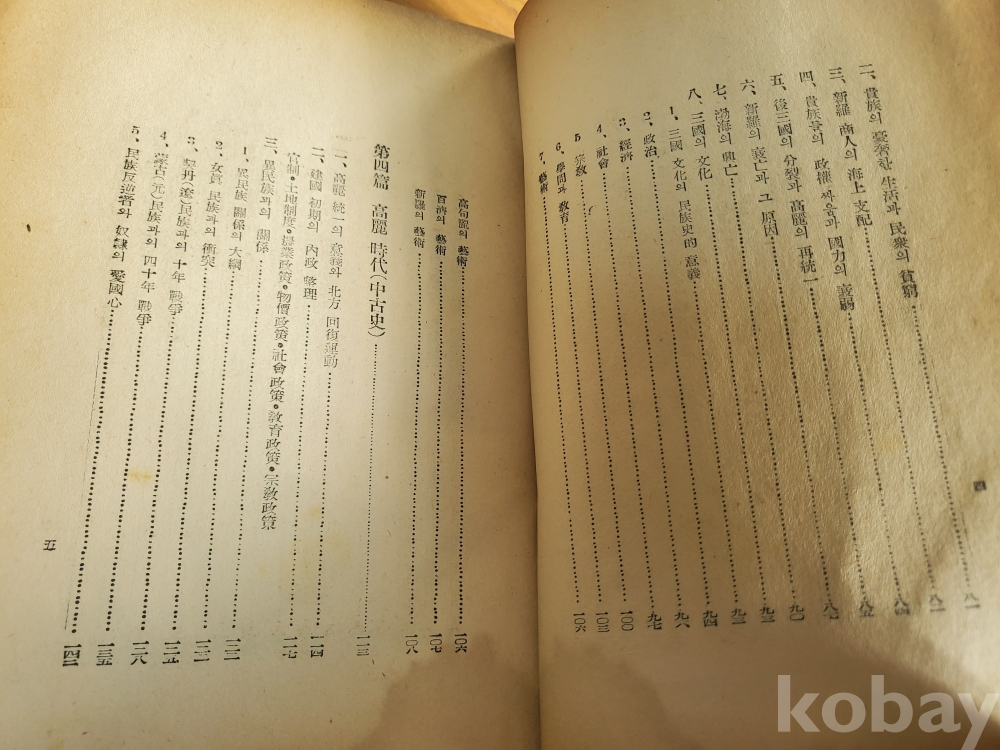 二、貴族의 豪奢한 生活과 民衆의 貧窮 八一
三、新羅 商人의 海上 支配 八二
四、貴族들의 政權 싸움과 國力의 衰弱 八四
五、後三國의 分裂과 高麗의 再統一 八五
六、新羅의 衰亡과 그 原因 八七
七、渤海의 興亡 九〇
八、三國의 文化 九三
1、三國 文化의 民族史的 意義 九三
2、政治 九四
3、經濟 九六
4、社會 九七
5、宗敎 一〇〇
6、學問과 敎育 一〇三
7、藝術 一〇六
四
高句麗의 藝術 一〇六
百濟의 藝術 一〇七
新羅의 藝術 一〇八
第四篇 高麗 時代(中古史) 一一三
一、高麗 統一의 意義와 北方 回復運動 一一四
二、建國 初期의 內政 整理 一一七
官制·土地制度·農業政策·物價政策·社會政策·敎育政策·宗敎政策
三、異民族과의 關係 一二二
1、異民族 關係의 大綱 一二二
2、女眞 民族과의 衝突 一二五
3、契丹(遼)民族과의 十年 戰爭 一二八
4、蒙古(元)民族과의 四十年 戰爭 一三五
5、民族反逆者와 奴隷의 愛國心 一四三
五
kobay